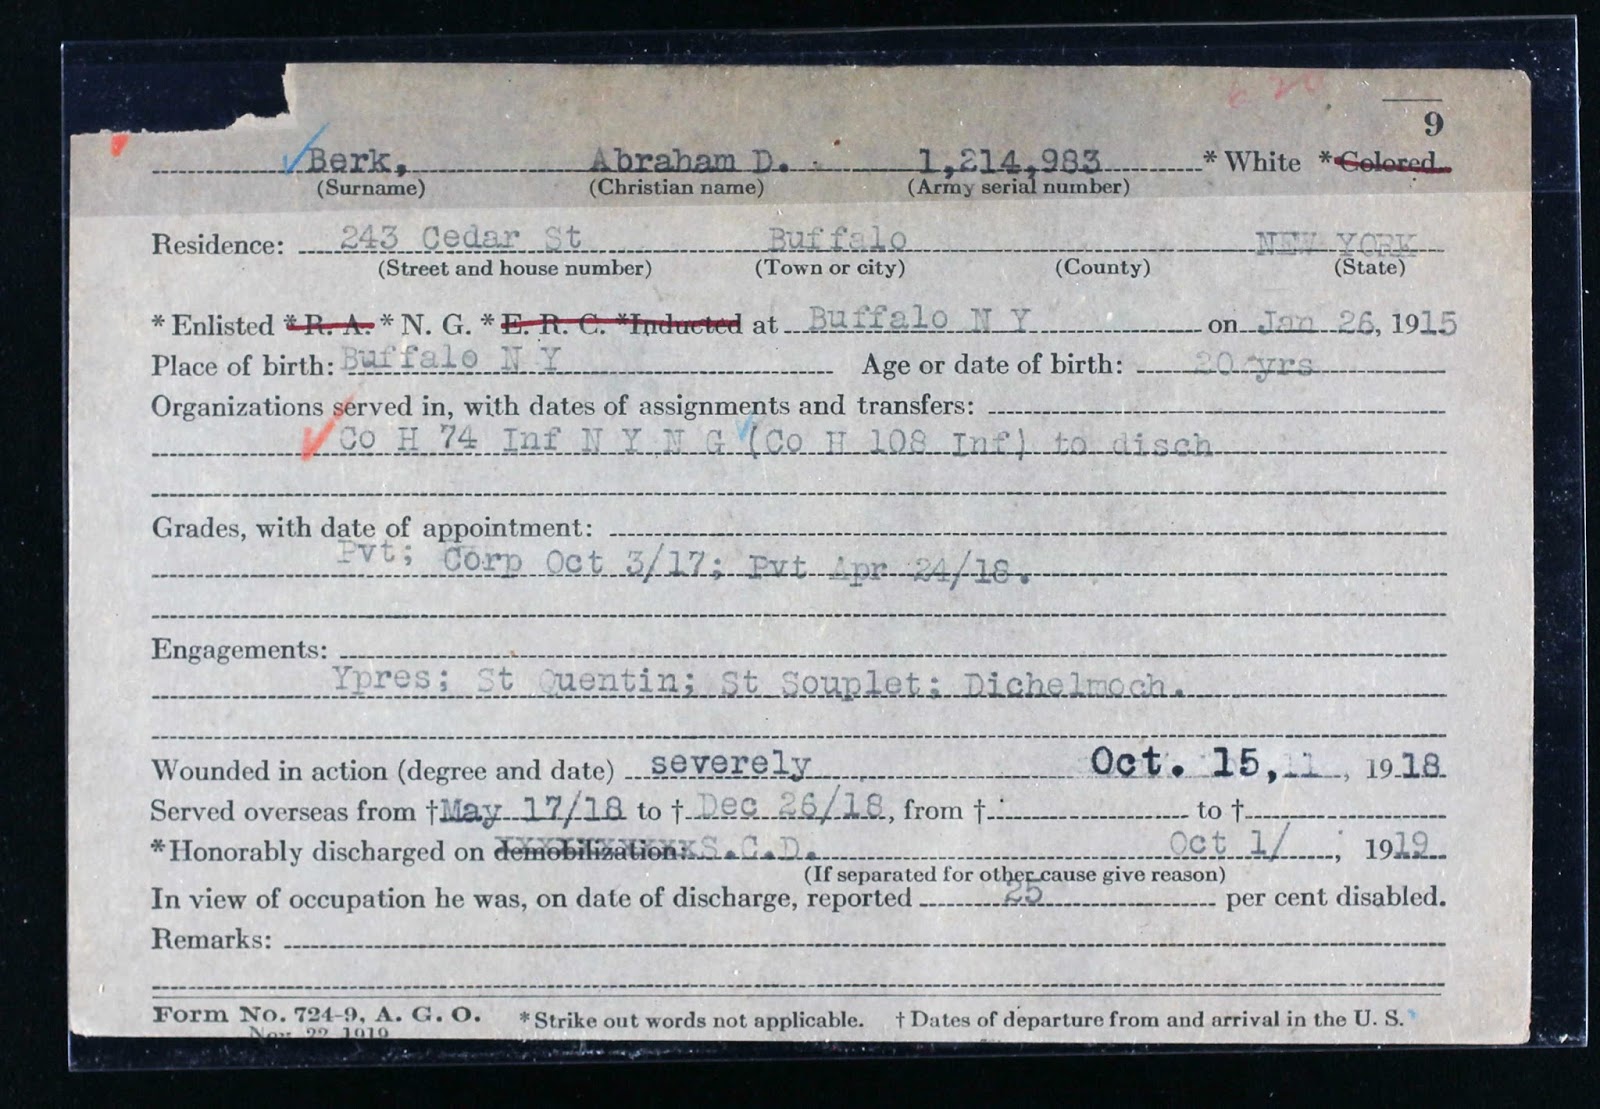 9
Berk, Abraham D. 1,214,983 * White * Colored
(Surname) (Christian name) (Army serial number)
Residence: 243 Cedar St Buffalo NEW YORK
(Street and house number) (Town or city) (County) (State)
* Enlisted * R. A. * N. G. * E. R. C. * Inducted at Buffalo N Y on Jan 26, 1915
Place of birth: Buffalo N Y Age or date of birth: 20 yrs
Organizations served in, with dates of assignments and transfers:
Co H 74 Inf N Y N G (Co H 108 Inf) to disch
Grades, with date of appointment:
Pvt; Corp Oct 3/17; Pvt Apr 24/18.
Engagements:
Ypres; St Quentin; St Souplet; Dichelmoch.
Wounded in action (degree and date) severely Oct. 15, 1918
Served overseas from † May 17/18 to † Dec 26/18, from † to †
* Honorably discharged on demobilization: S.C.D. Oct 1/, 1919
(If separated for other cause give reason)
In view of occupation he was, on date of discharge, reported 25 per cent disabled.
Remarks:
Form No. 724-9, A. G. O. * Strike out words not applicable. † Dates of departure from and arrival in the U. S.
Nov. 22 1919